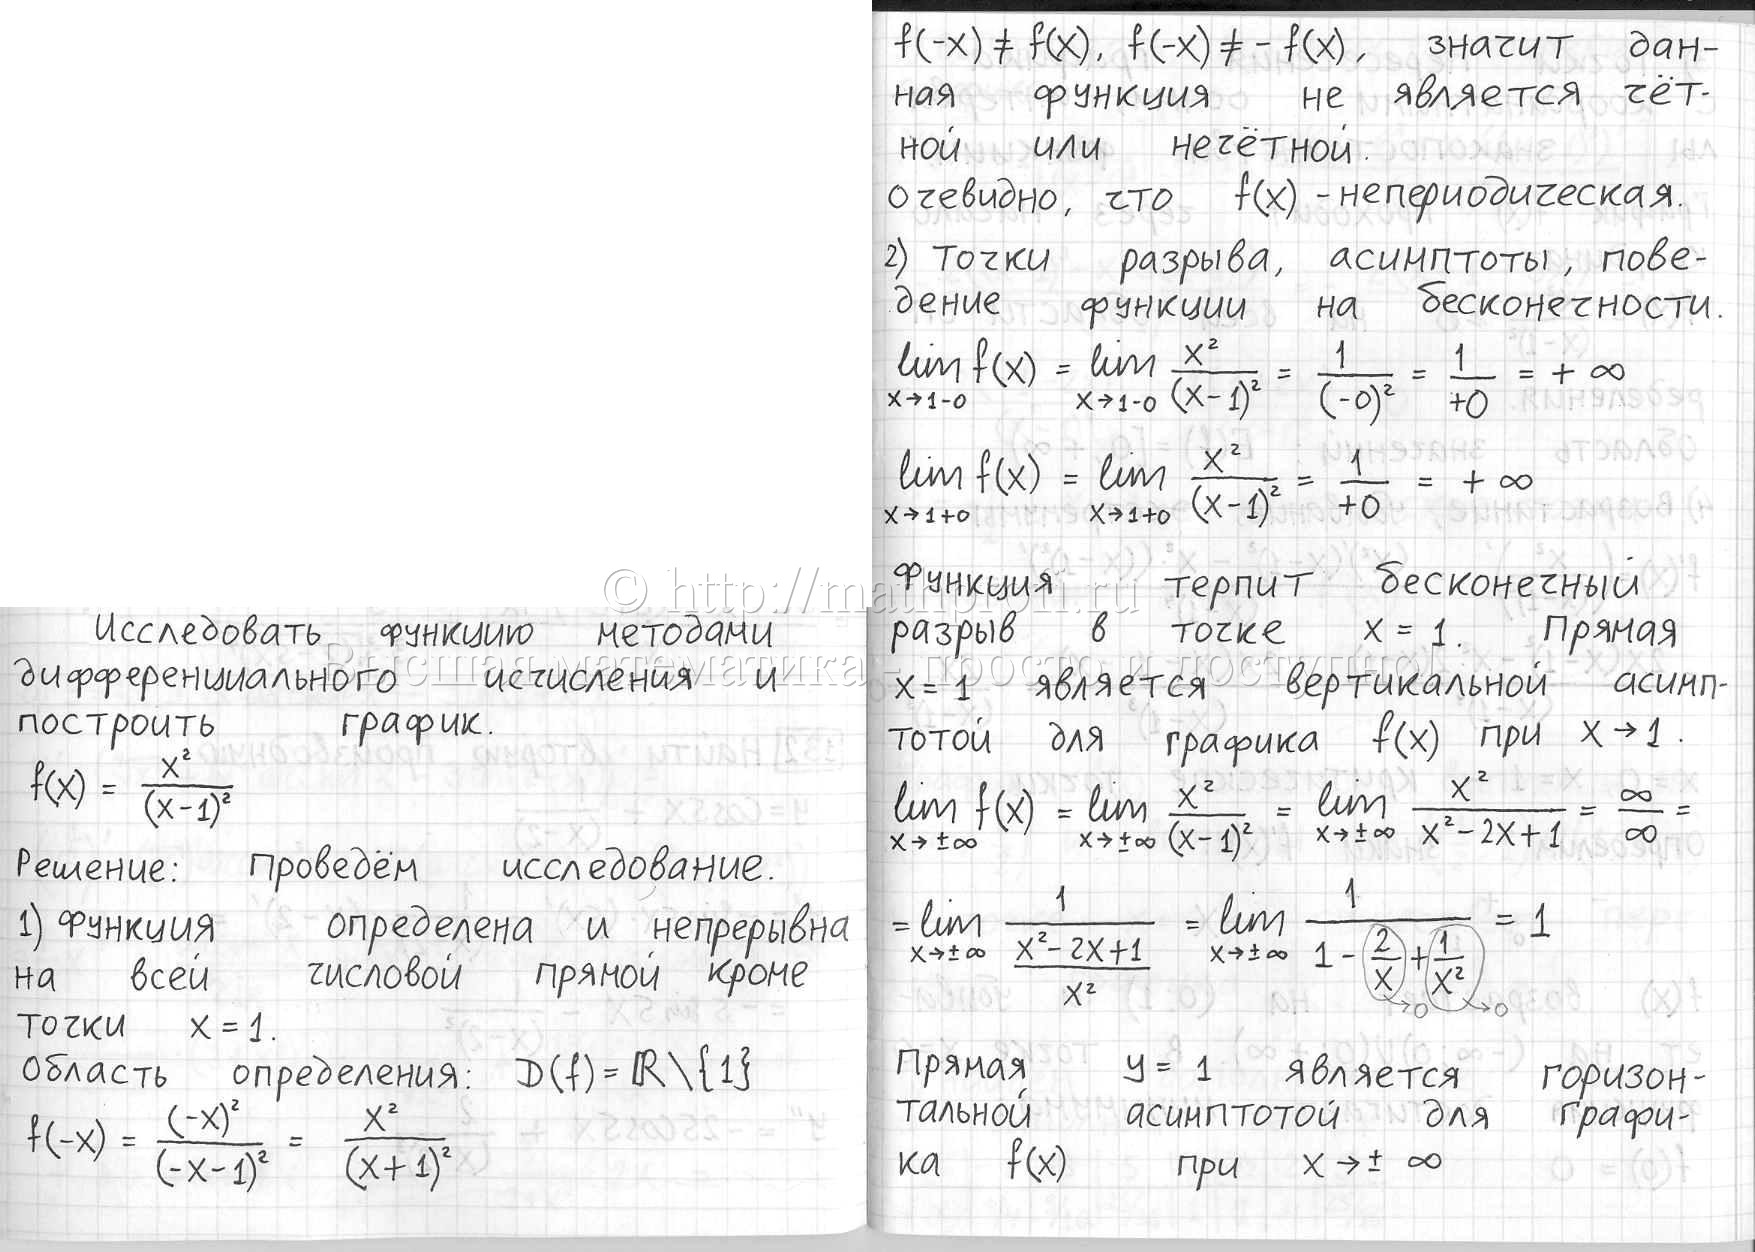 Исследовать функцию методами
дифференциального исчисления и
построить график.
f(x) = x²/(x-1)²
Решение: проведём исследование.
1) Функция определена и непрерывна
на всей числовой прямой кроме
точки x=1.
Область определения: D(f)=ℝ\{1}
f(-x) = (-x)²/(-x-1)² = x²/(x+1)²
f(-x) ≠ f(x), f(-x) ≠ - f(x), значит дан-
ная функция не является чёт-
ной или нечётной.
Очевидно, что f(x) - непериодическая.
2) Точки разрыва, асимптоты, пове-
дение функции на бесконечности.
lim x→1-0 f(x) = lim x→1-0 x²/(x-1)² = 1/(-0)² = 1/+0 = +∞
lim x→1+0 f(x) = lim x→1+0 x²/(x-1)² = 1/+0 = +∞
© http://mathprofi.ru
Функция терпит бесконечный
разрыв в точке x=1. Прямая
Высшая математика - просто и доступно!
x=1 является вертикальной асимп-
тотой для графика f(x) при x→1.
lim x→±∞ f(x) = lim x→±∞ x²/(x-1)² = lim x→±∞ x²/(x²-2x+1) = ∞/∞ =
= lim x→±∞ 1/((x²-2x+1)/x²) = lim x→±∞ 1/(1 - 2/x →0 + 1/x² →0) = 1
Прямая y=1 является горизон-
тальной асимптотой для графи-
ка f(x) при x→±∞